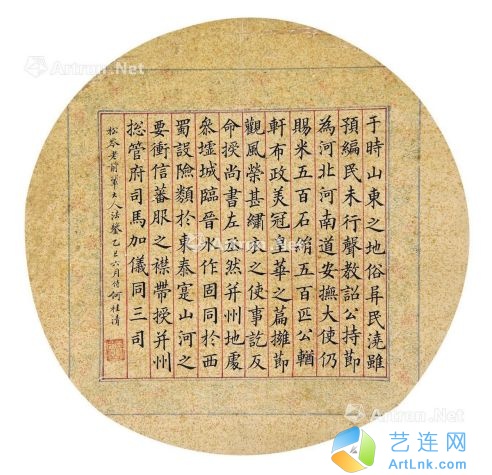 于時山東之地俗阜民澆雖
預編民未行聲教詔公持節
為河北河南道安撫大使仍
賜米五百石絹五百匹公輶
軒布政美冠皇華之篇擁節
觀風榮甚繡衣之使事訖反
命授尚書左丞然并州地處
叅墟城臨晉水作固同於西
蜀設險類於東秦寔山河之
要衝信蕃服之襟帶授并州
捴管府司馬加儀同三司
松岑老前輩大人法鑒乙巳六月侍何桂清
Artron.Net
Artron.Net
艺连网
ArtLnk.Com